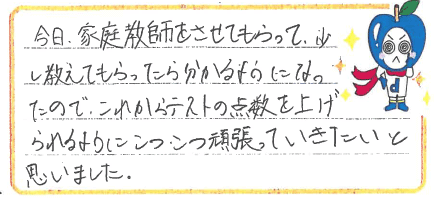 今日、家庭教師をさせてもらって、少
し教えてもらったら分かるようになっ
たので、これからテストの点数を上げ
られるようにこつこつ頑張っていきたいと
思いました。
d